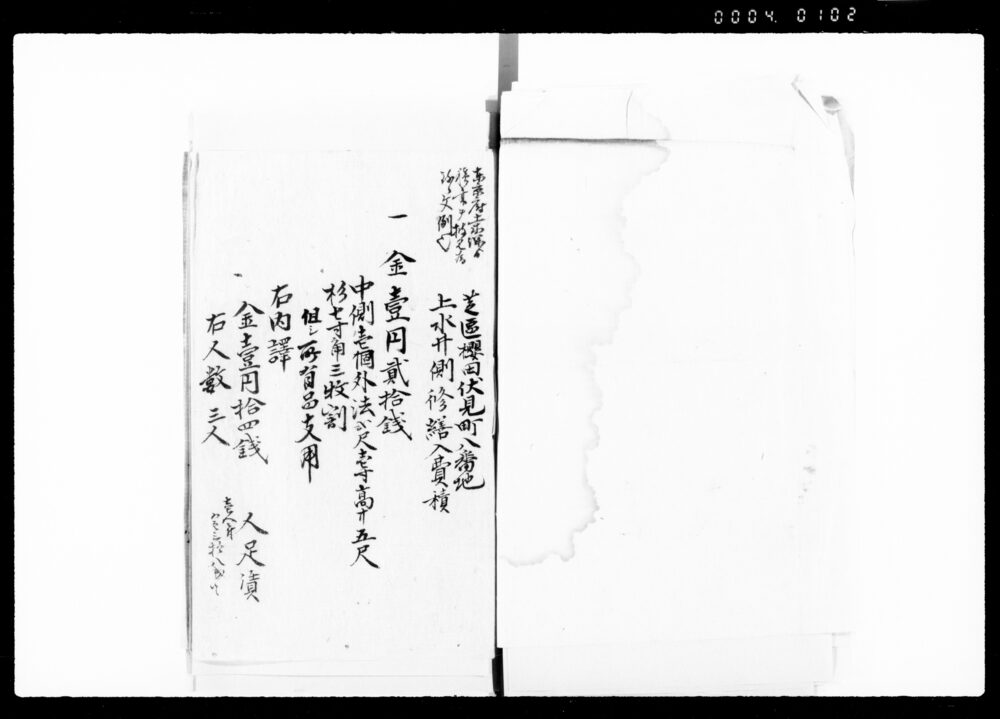 0004 0102
東京府土木課
芝區櫻田伏見町八番地
上水井側修繕入費積
一 金壹円貳拾銭
中側壱個外法弐尺壱寸高サ五尺
杉七寸角三枚割
但シ所有品支用
右内譯
金壹円拾四銭 人足賃
右人数三人